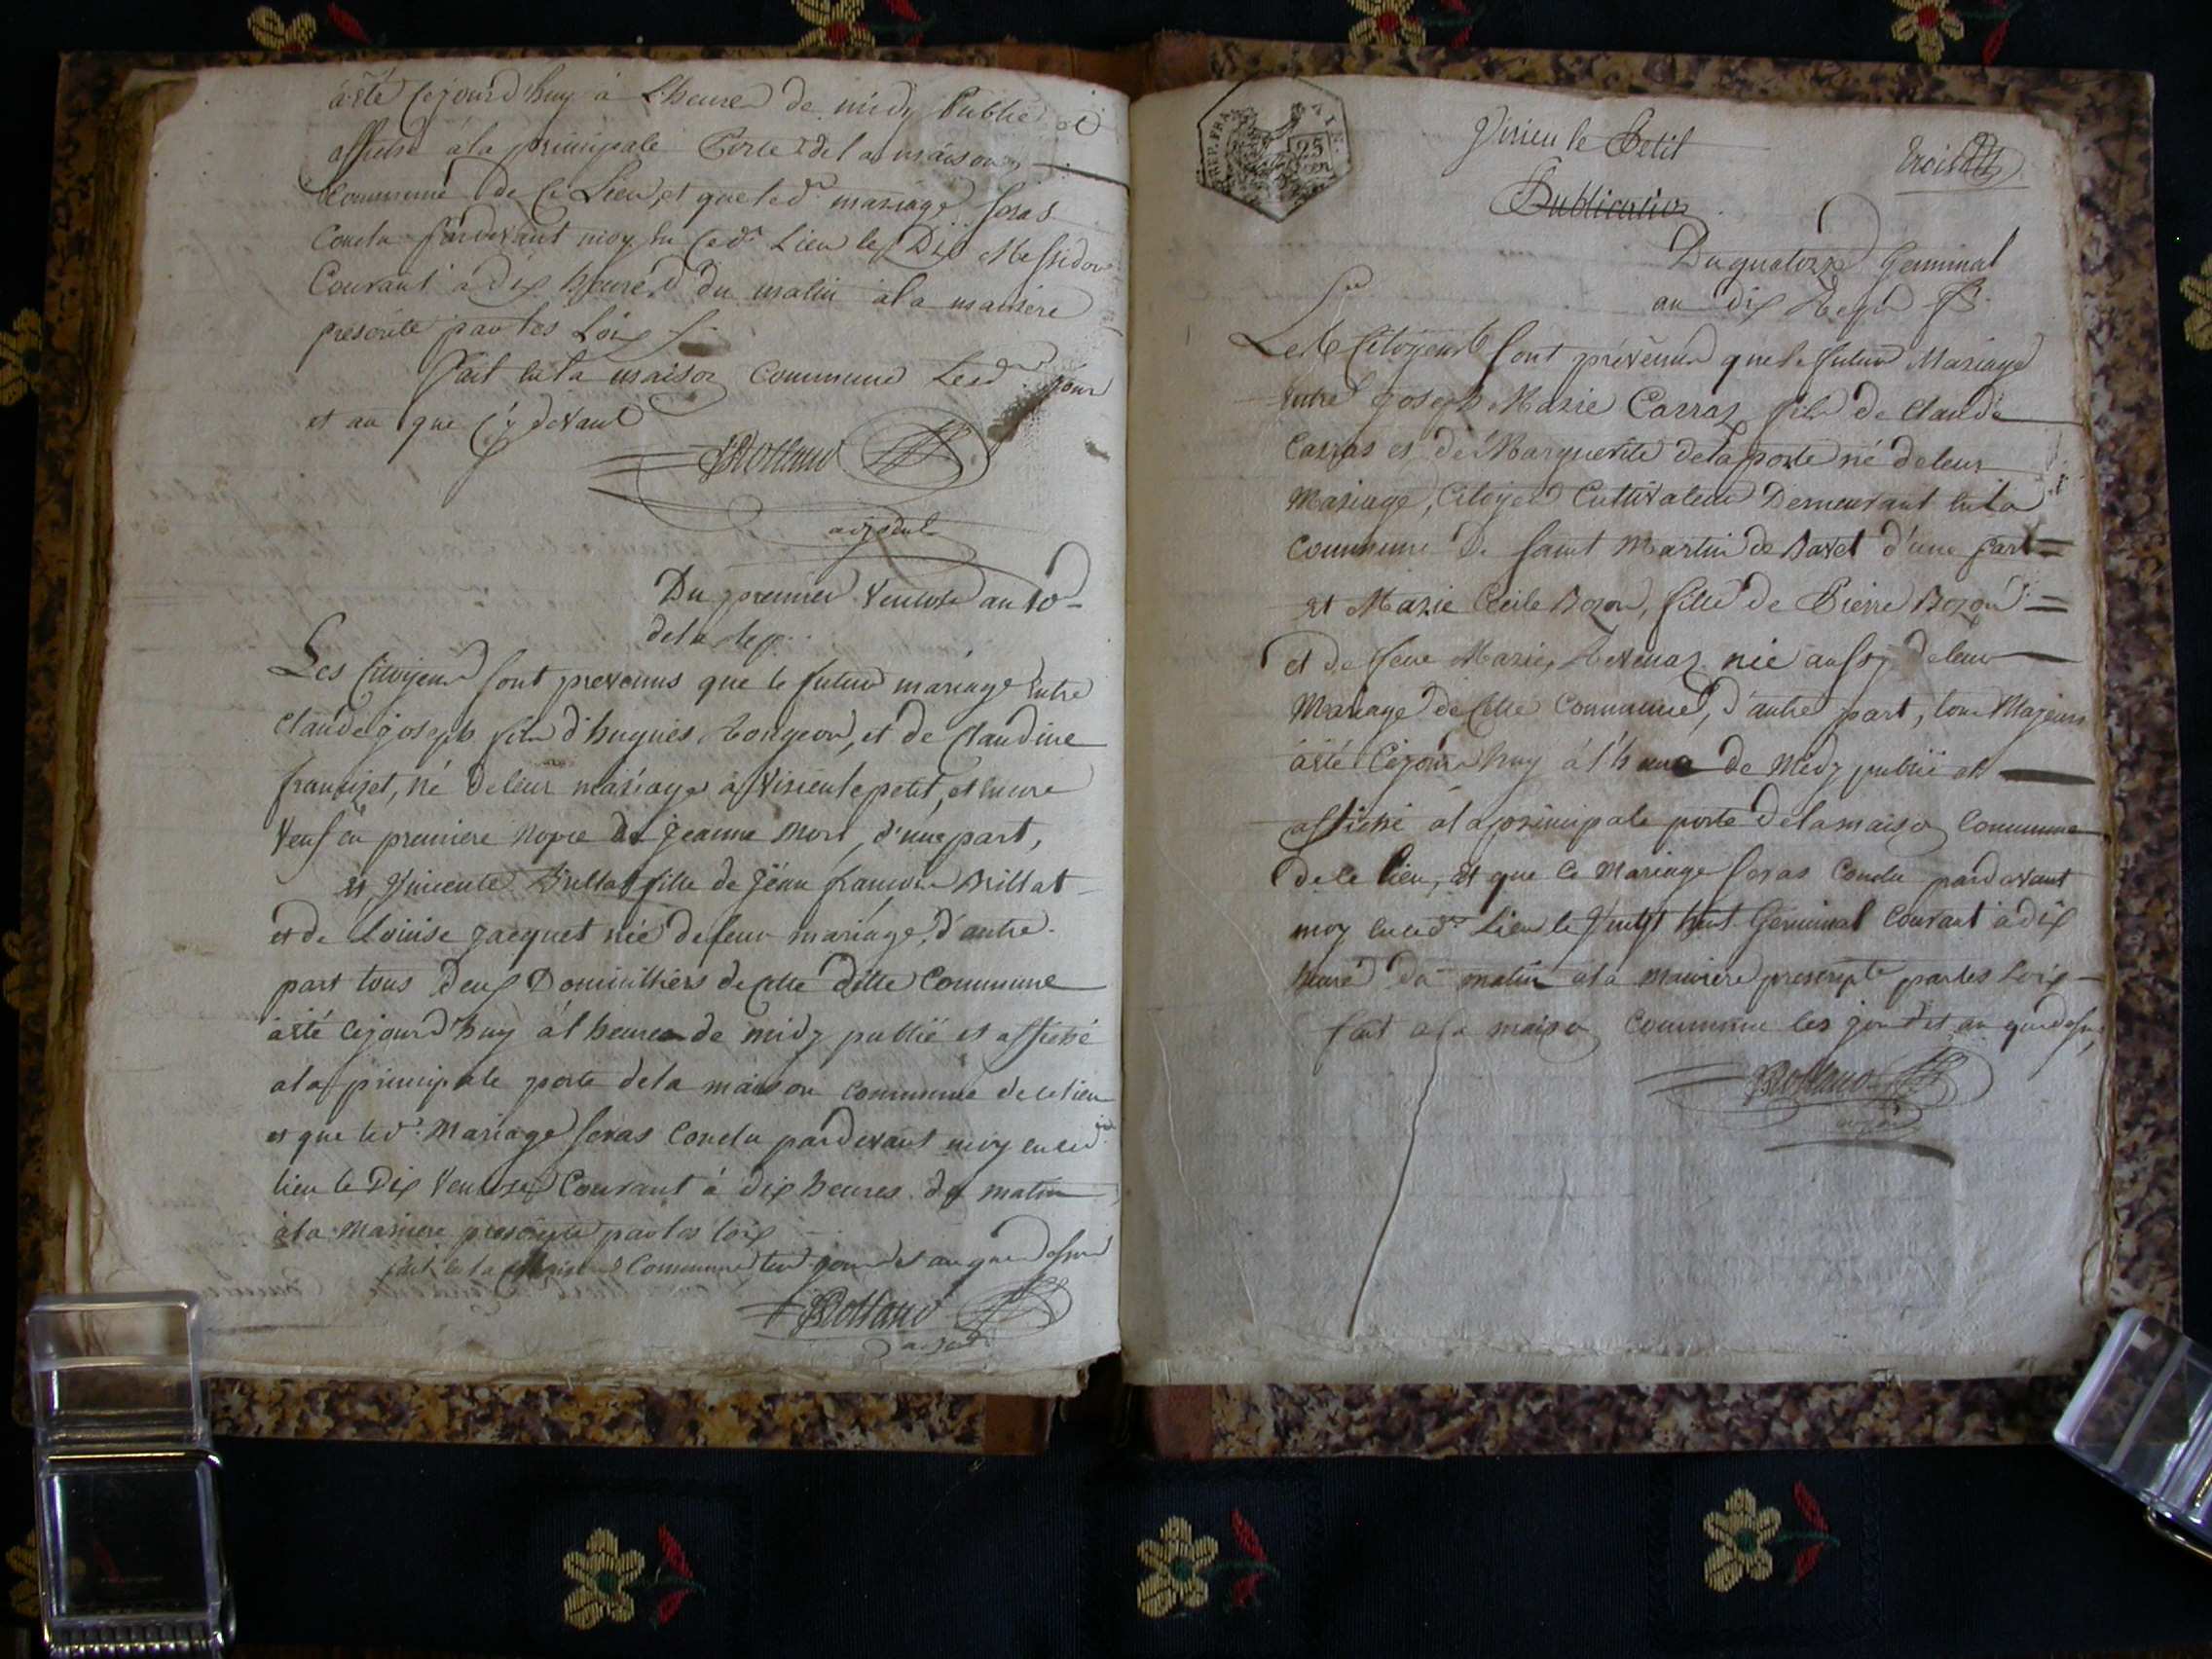 à été cejourd'huy à L'heure de midy Publié et
affiché à la principale Porte de la maison
Commune de ce Lieu, et que led.t mariage seras
Conclu pardevant moy en ced.t Lieu le Dix Messidor
Courant à dix heures du matin à la maniere
prescrite par les Loix
Fait en la maison Commune Lesd. jour
et an que cy devant
Rolland
adjoint
Du premier Ventose an 10
de la Rep.
Les Citoyens sont prevenus que le futur mariage entre
Claude joseph fils d'hugues Rongeon, et de Claudine
françizet, né de leur mariage à Virieu le petit, et
Veuf en premiere Nopce de Jeanne Mort, d'une part,
et Vincente Brillat fille de Jean françois Brillat
et de Louise Jacquet née de leur mariage, d'autre
part tous deux Domicilliers de cette ditte Commune
à été cejourd'huy à l'heure de midy publié et affiché
a la principale porte de la maison commune de ce lieu
et que led.t Mariage seras Conclu pardevant moy en ced.
lieu le Dix Ventose Courant à dix heures du matin
à la Maniere prescripte par les loix
fait en la Maison Commune led. jour et an que dessus
Rolland
adjoint
REP. FRA
25
CEN
Virieu le Petit
Publication
Du quatorze Germinal
an dix Rep.
Les Citoyens sont prévenus que le futur Mariage
entre Joseph Marie Carraz fils de Claude
Carras et de Marguerite delaporte né de leur
Mariage, Citoyen Cultivateur Demeurant en la
Commune De saint Martin de Bavel d'une part
et Marie Cecile Bozon, fille de Pierre Bozon
et de feue Marie Revenaz née aussy de leur
Mariage de Cette Commune, d'autre part, tous Majeurs
à été Cejourd'huy à l'heure de Midy publié et
affiché a la principale porte de la maison Commune
de ce Lieu, et que ce Mariage seras Conclu pardevant
moy en ced.t Lieu le Vingt huit Germinal Courant à dix
heure du matin a la maniere prescripte par les Loix
fait a la maison Commune les jour et an que dessus,
Rolland
adjoint